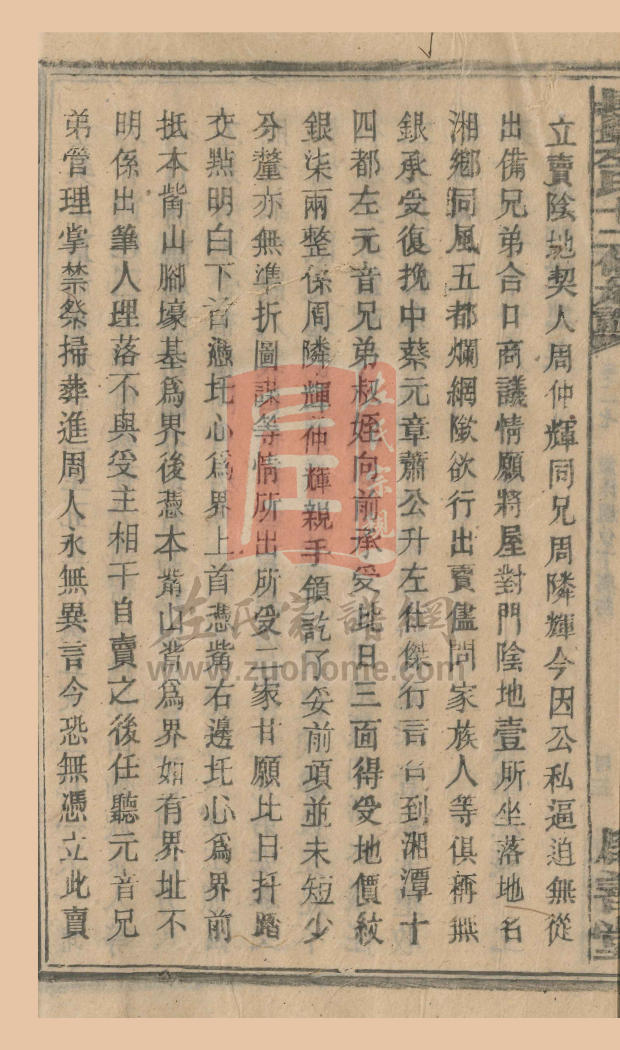 立賣陰地契人周仲輝同兄周隣輝今因公私逼迫無從
出備兄弟合口商議情願將屋對門陰地壹所坐落地名
湘鄉同風五都爛網欲行出賣儘問家族人等俱稱無
銀承受復挽中蔡元章蕭公升左仕傑行言召到湘潭十
四都左元音兄弟叔姪向前承受此日三面得受地價紋
銀柒兩整係周隣輝仲輝親手領訖了妥前項並未短少
分釐亦無準折圖謀等情所出所受二家甘願比日扦踏
交點明白下首憑圫心爲界上首憑觜右邊圫心爲界前
抵本觜山腳壕基爲界後憑本觜山觜爲界如有界址不
明係出筆人理落不與受主相干自賣之後任聽元音兄
弟管理掌禁祭掃葬進周人永無異言今恐無憑立此賣
左氏宗親
左氏家譜網
www.zuohome.com